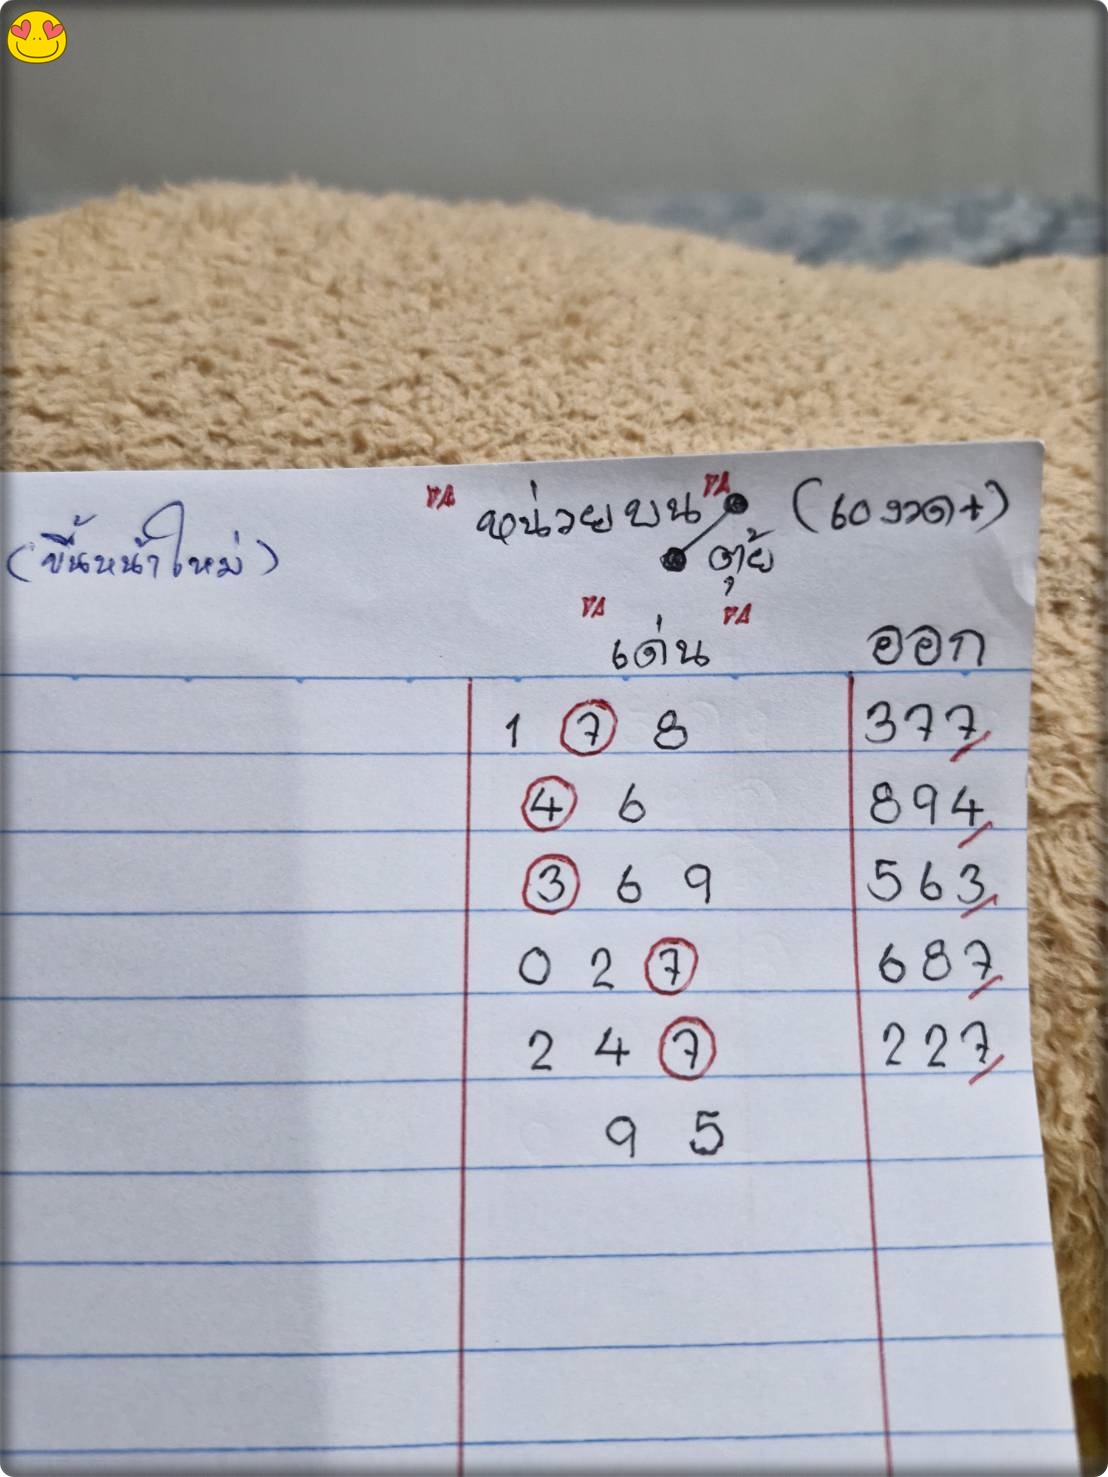 หน่วยบน (60งวด+)
(ขึ้นหน้าใหม่) ตุ้ย
เด่น ออก
1 7 8 377
4 6 894
3 6 9 563
0 2 7 687
2 4 7 227
9 5